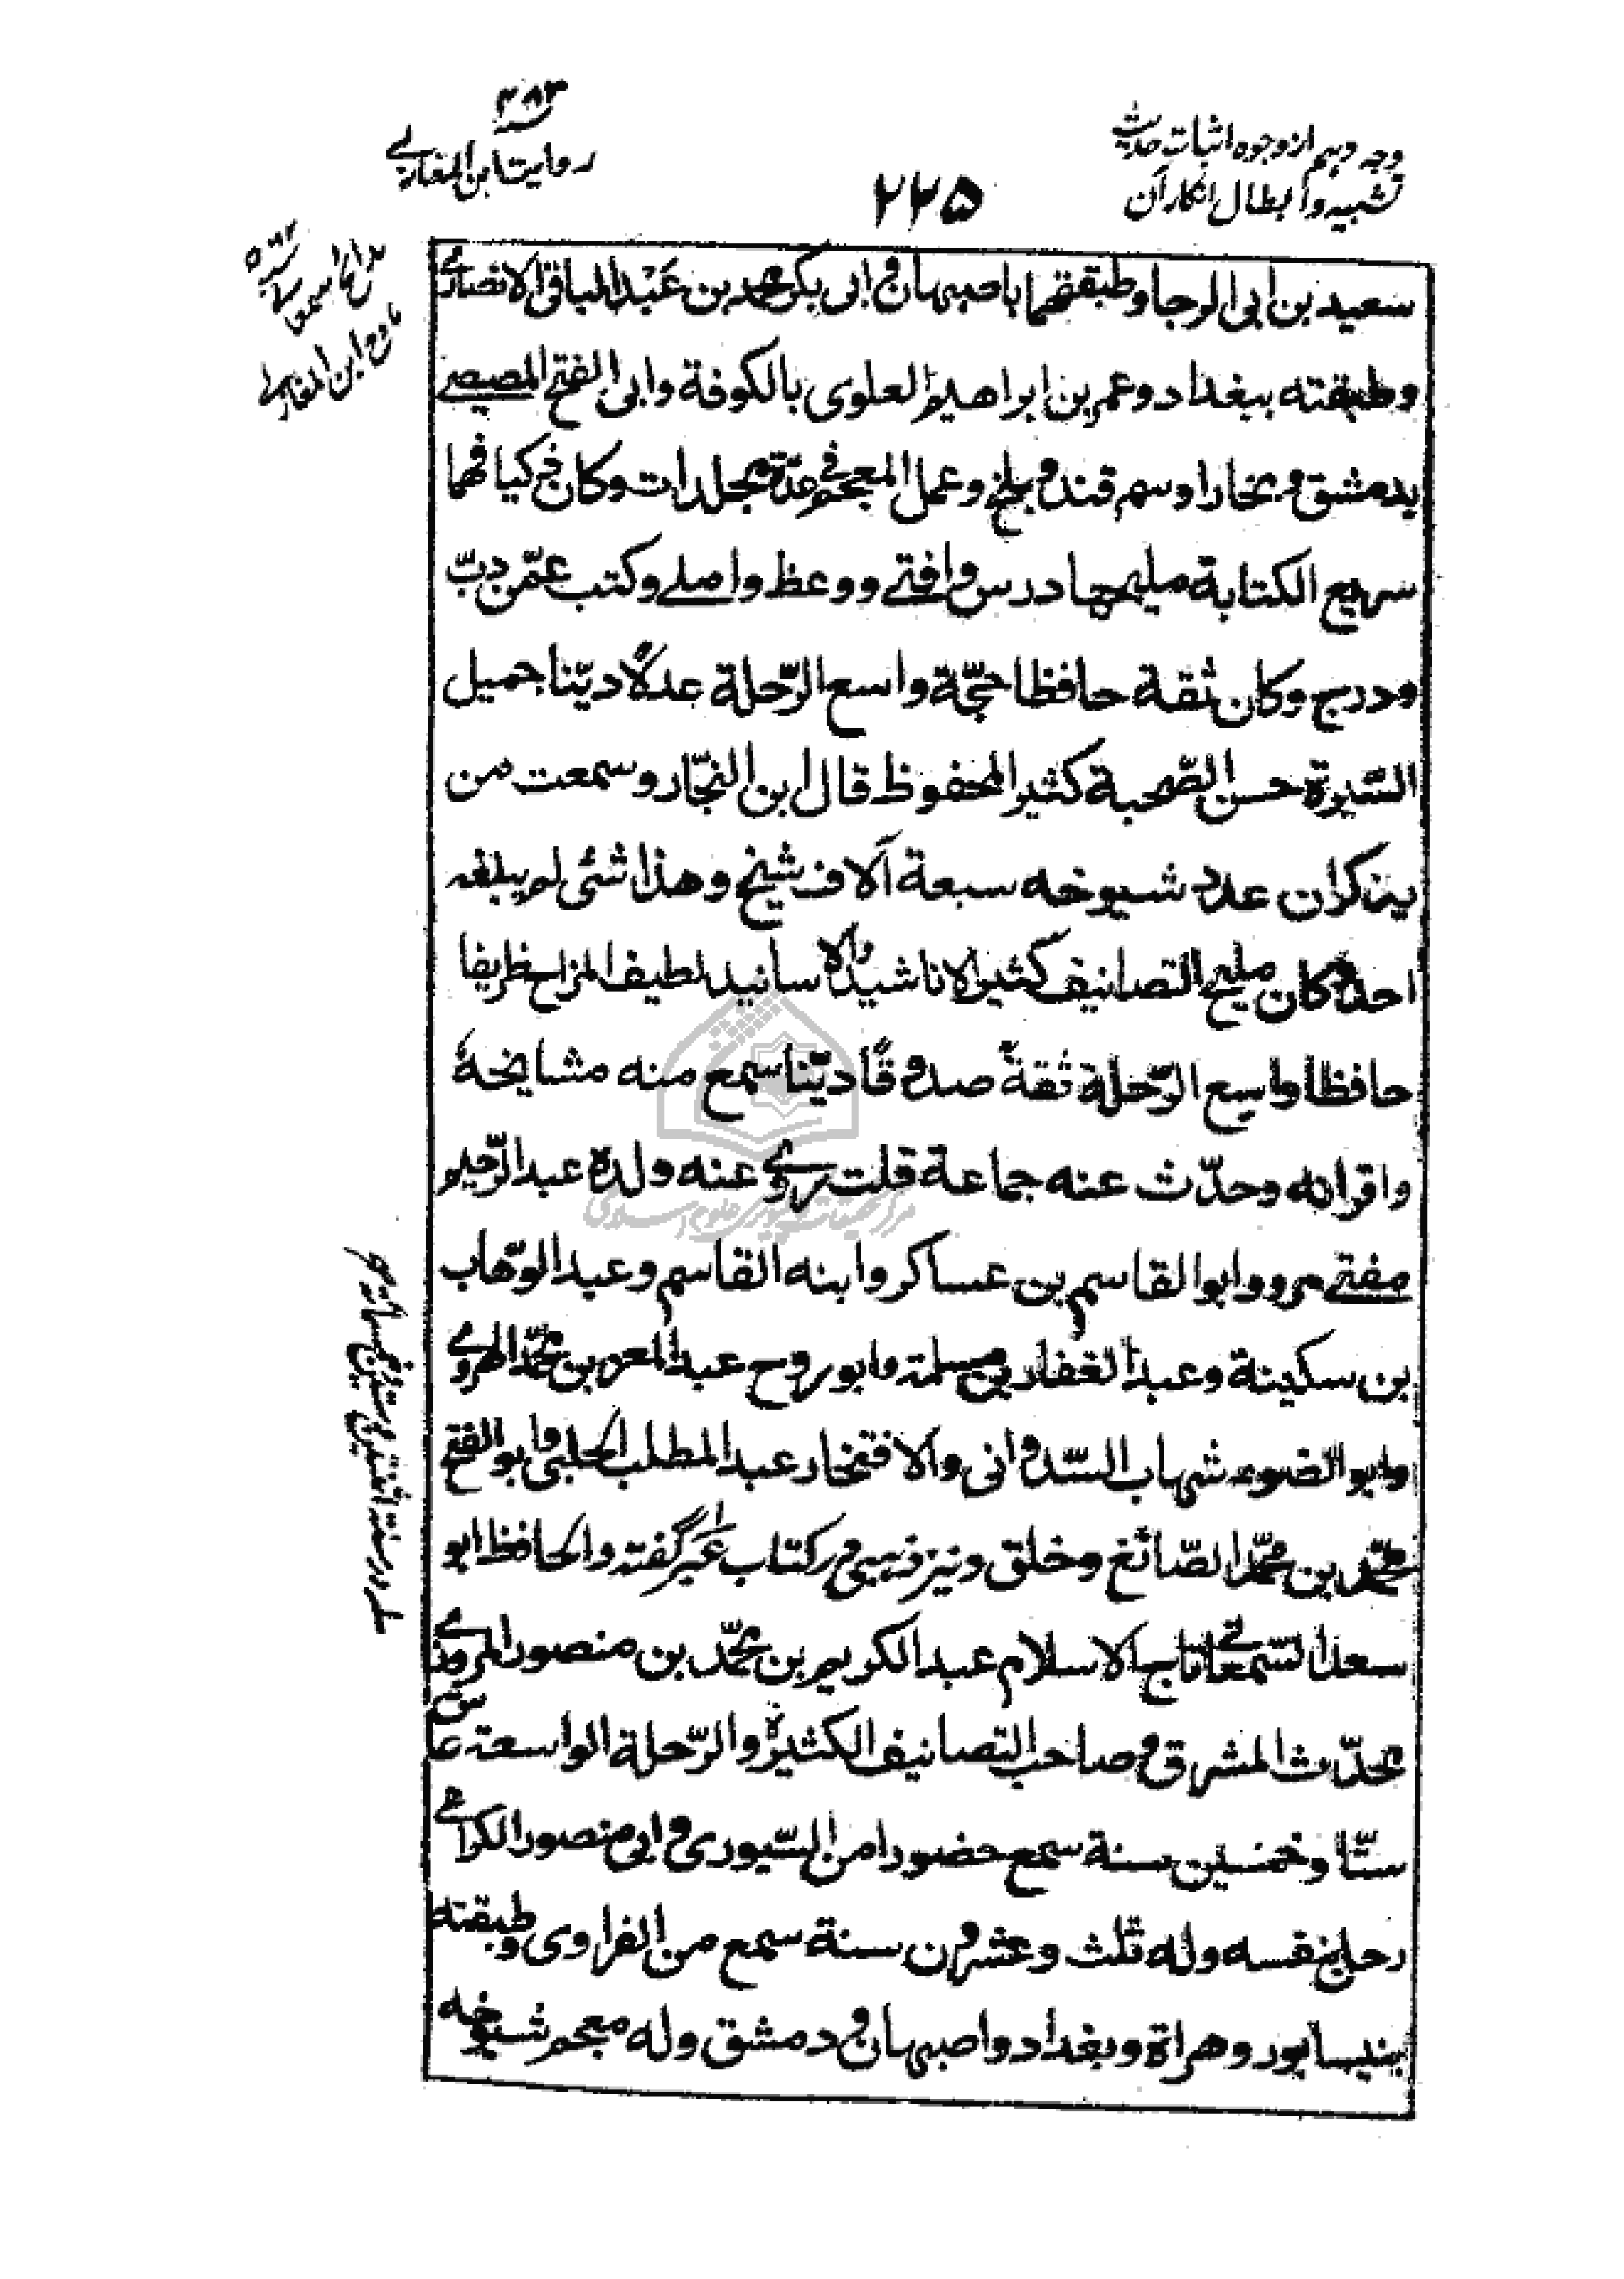 وجه دهم از وجوه اثبات حدیث
تشبیه و ابطال انکار آن
۲۲۵
۴۸۳
روایت ابن المغازلی
مدائح سمعانی
مادح ابن المغازلی
سعید بن ابی الرجا و طبقتهما باصبهان و ابی بکر محمد بن عبد الباقی الانصاری
و طبقته ببغداد و عمر بن ابراهیم العلوی بالکوفة و ابی الفتح المصیصی
بدمشق و بخارا و سمرقند و بلخ و عمل المعجم فی عدّة مجلدات و کان ذکیا فهما
سریع الکتابة ملیحها درس و افتی و وعظ و املی و کتب عمّن دبّ
و درج و کان ثقة حافظا حجّة واسع الرّحلة عدلا دیّنا جمیل
السّیرة حسن الصّحبة کثیر المحفوظ قال ابن النجّار و سمعت من
یذکر ان عدد شیوخه سبعة آلاف شیخ و هذا شئ لم یبلغه
احد و کان ملیح التصانیف کثیر الاناشید و الاسانید لطیف المزاح ظریفا
حافظا واسع الرّحلة ثقة صدوقًا دیّنا سمع منه مشایخهٔ
و اقرانه و حدّث عنه جماعة قلت روی عنه ولده عبد الرّحیم
مفتی مرو و ابو القاسم بن عساکر و ابنه القاسم و عبد الوهّاب
بن سکینة و عبد الغفار بن مسلمه و ابو روح عبد المعز بن محمّد الهروی
و ابو الضوء شهاب السّدوانی و الافتخار عبد المطلب الحلبی و ابو الفتح
محمّد بن محمّد الصّائغ و خلق و نیز ذهبی در کتاب عبر گفته و الحافظ ابو
سعد السّمعانی تاج الاسلام عبد الکریم بن محمّد بن منصور المروزی
محدّث المشرق و صاحب التصانیف الکثیرة و الرّحلة الواسعة عاش
ستّا و خمسین سنة سمع حضورا من السّیوری و ابی منصور الکراعی
رحل بنفسه و له ثلث و عشرون سنة سمع من الفراوی و طبقته
بنیسابور و هراة و بغداد و اصبهان و دمشق و له معجم شیوخه